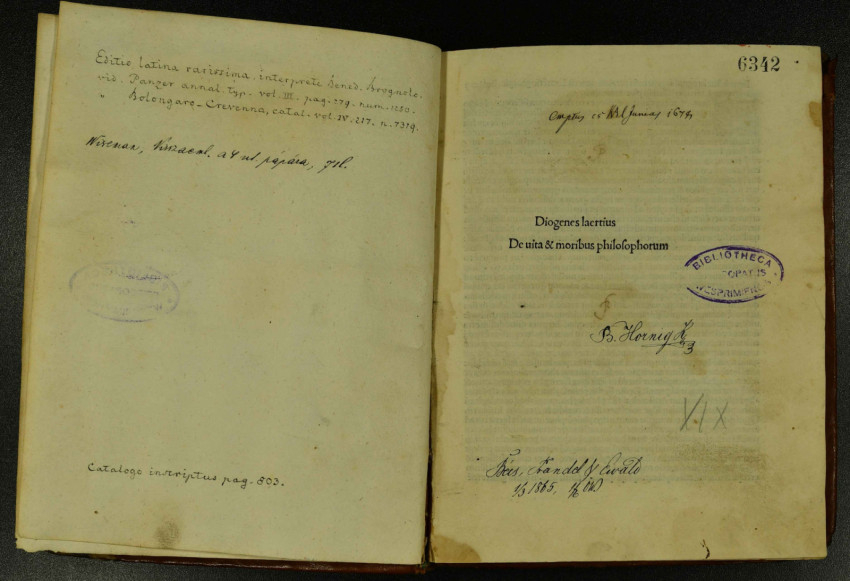 Editio latina rarissima, interprete Bened. Brognolo.
vid. Panzer annal. typ. vol. III. pag. 179. num. 1250.
" Bolongaro-Crevenna, catal. vol. IV. 217. n. 7319.
a 4 ut. pápára, 7 sl.
Catalogo inscriptus pag. 503.
6342
Emptus 15 Junias
Diogenes laertius
De uita & moribus philoſophorum
BIBLIOTHECA
B. Hornig K
XIX
Bécs, Kandel & Ewald
1/3 1865.